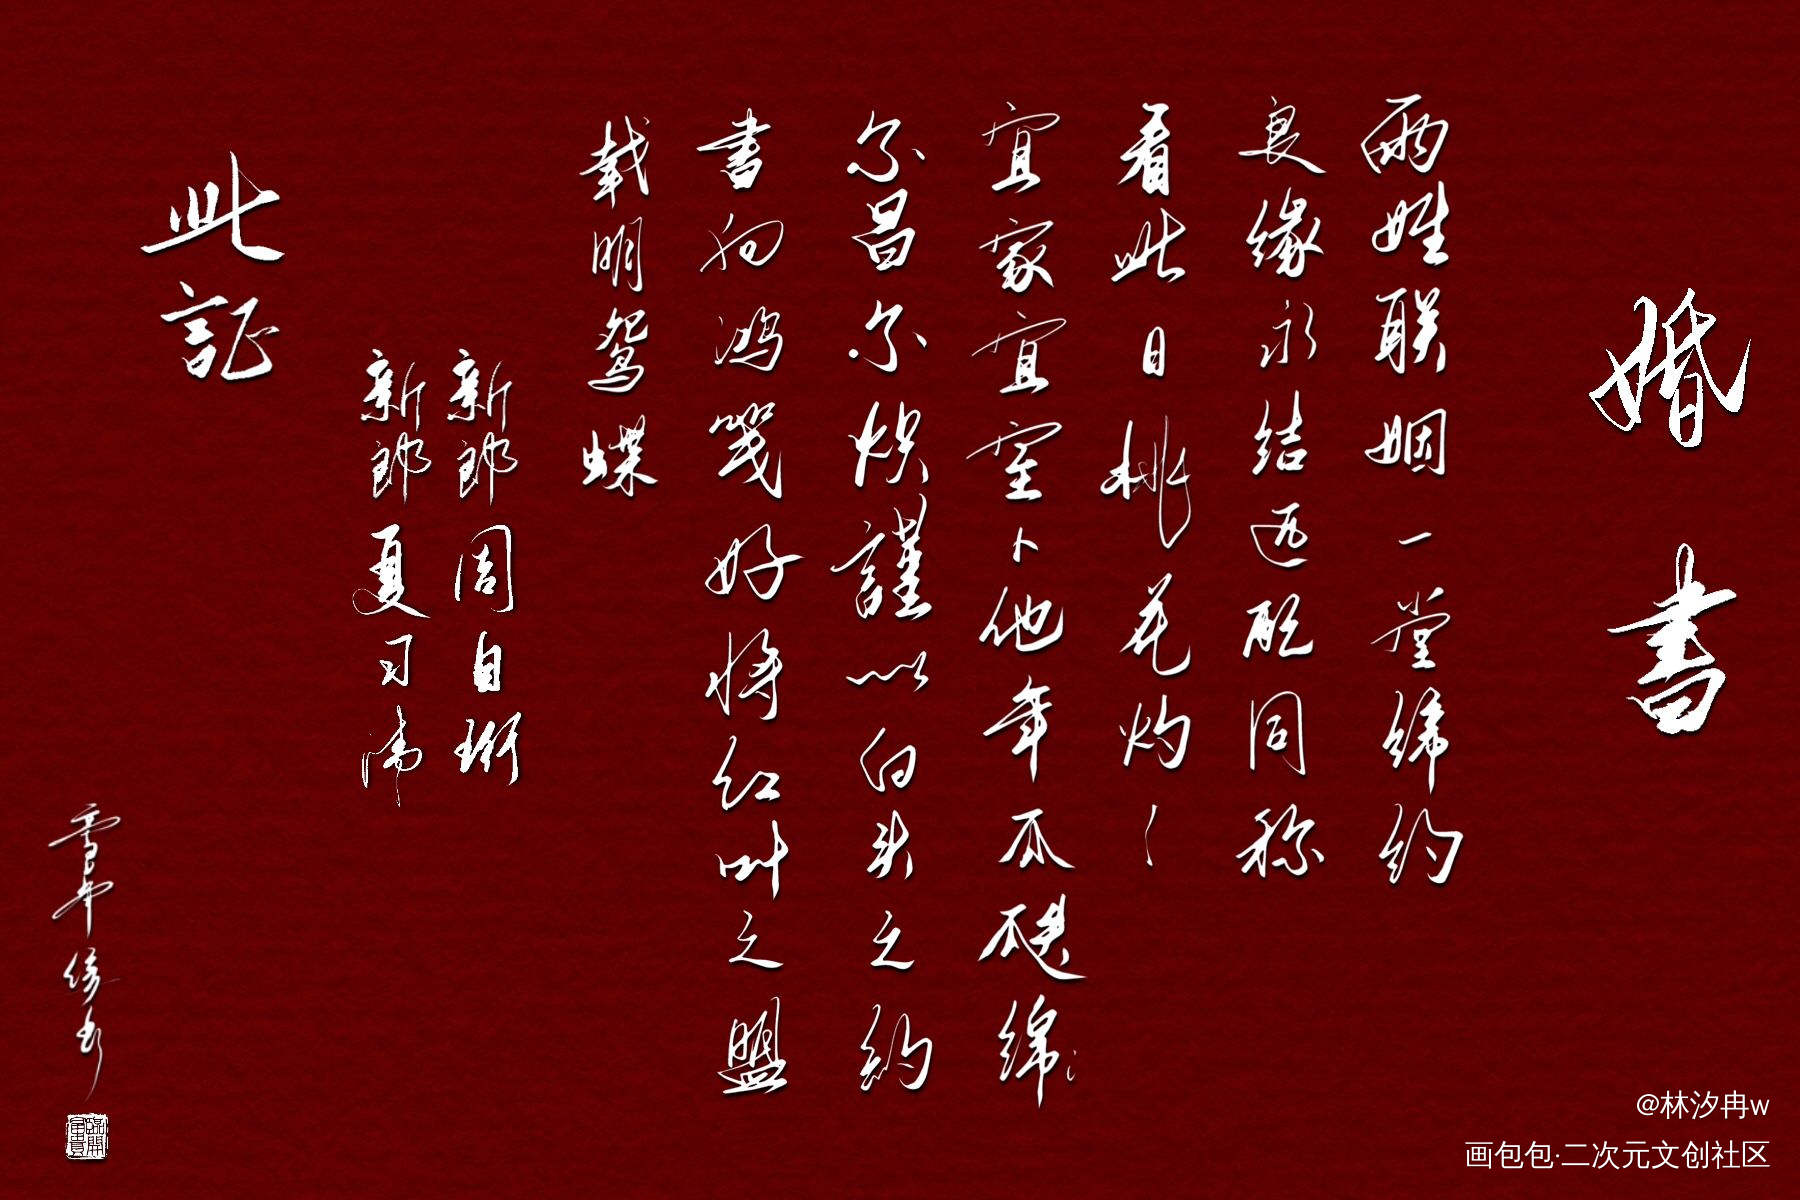 婚書
兩姓联姻一堂締约
良缘永结匹配同称
看此日桃花灼〻
宜家宜室卜他年瓜瓞绵〻
尔昌尔炽謹以白头之约
書向鸿笺好将红叶之盟
载明鸳蝶
新郎周自珩
新郎夏习清
此証
@林汐冉w
画包包·二次元文创社区